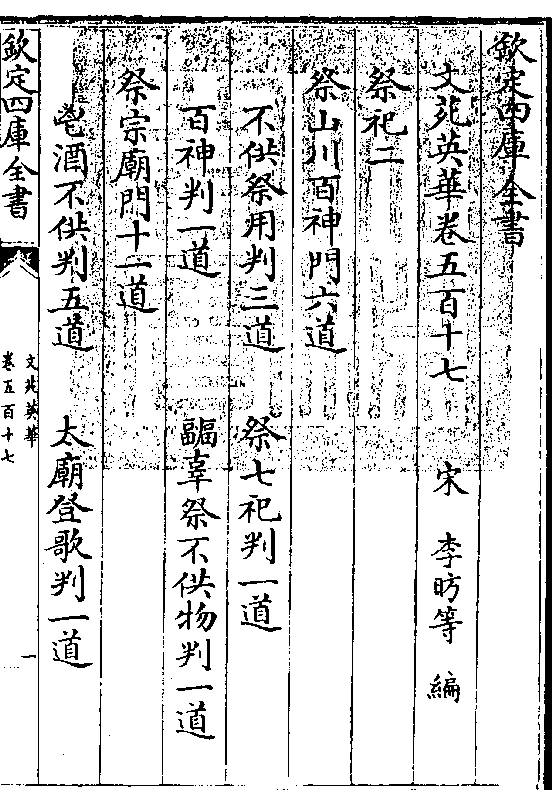 欽定四庫全書
文苑英華卷五百十七 宋 李昉等 編
祭祀二
祭山川百神門六道
不供祭用判三道 祭七祀判一道
百神判一道 疈辜祭不供物判一道
祭宗廟門十一道
鬯酒不供判五道 太廟登歌判一道
欽定四庫全書
文苑英華
卷五百十七
一